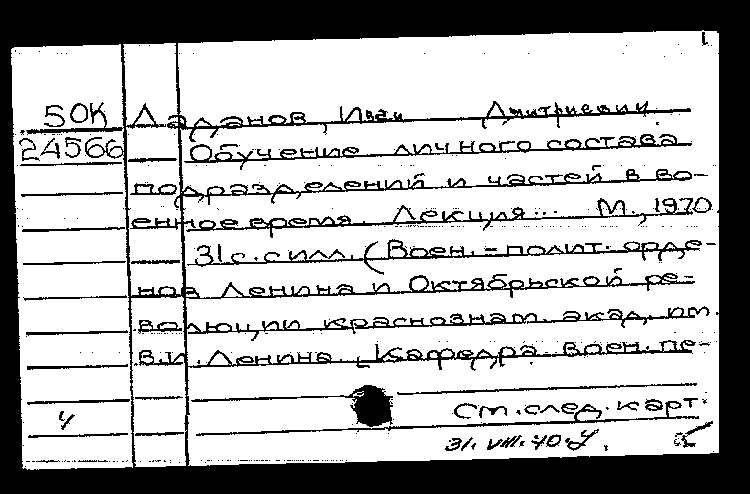 50К Ладанов, Иван Дмитриевич.
24566 Обучение личного состава
подразделений и частей в во-
енное время. Лекция... М., 1970.
31 с. с илл. (Воен.-полит. орде-
нов Ленина и Октябрьской ре-
волюции краснознам. акад. им.
В.И. Ленина. Кафедра воен. пе-
См. след. карт.
4